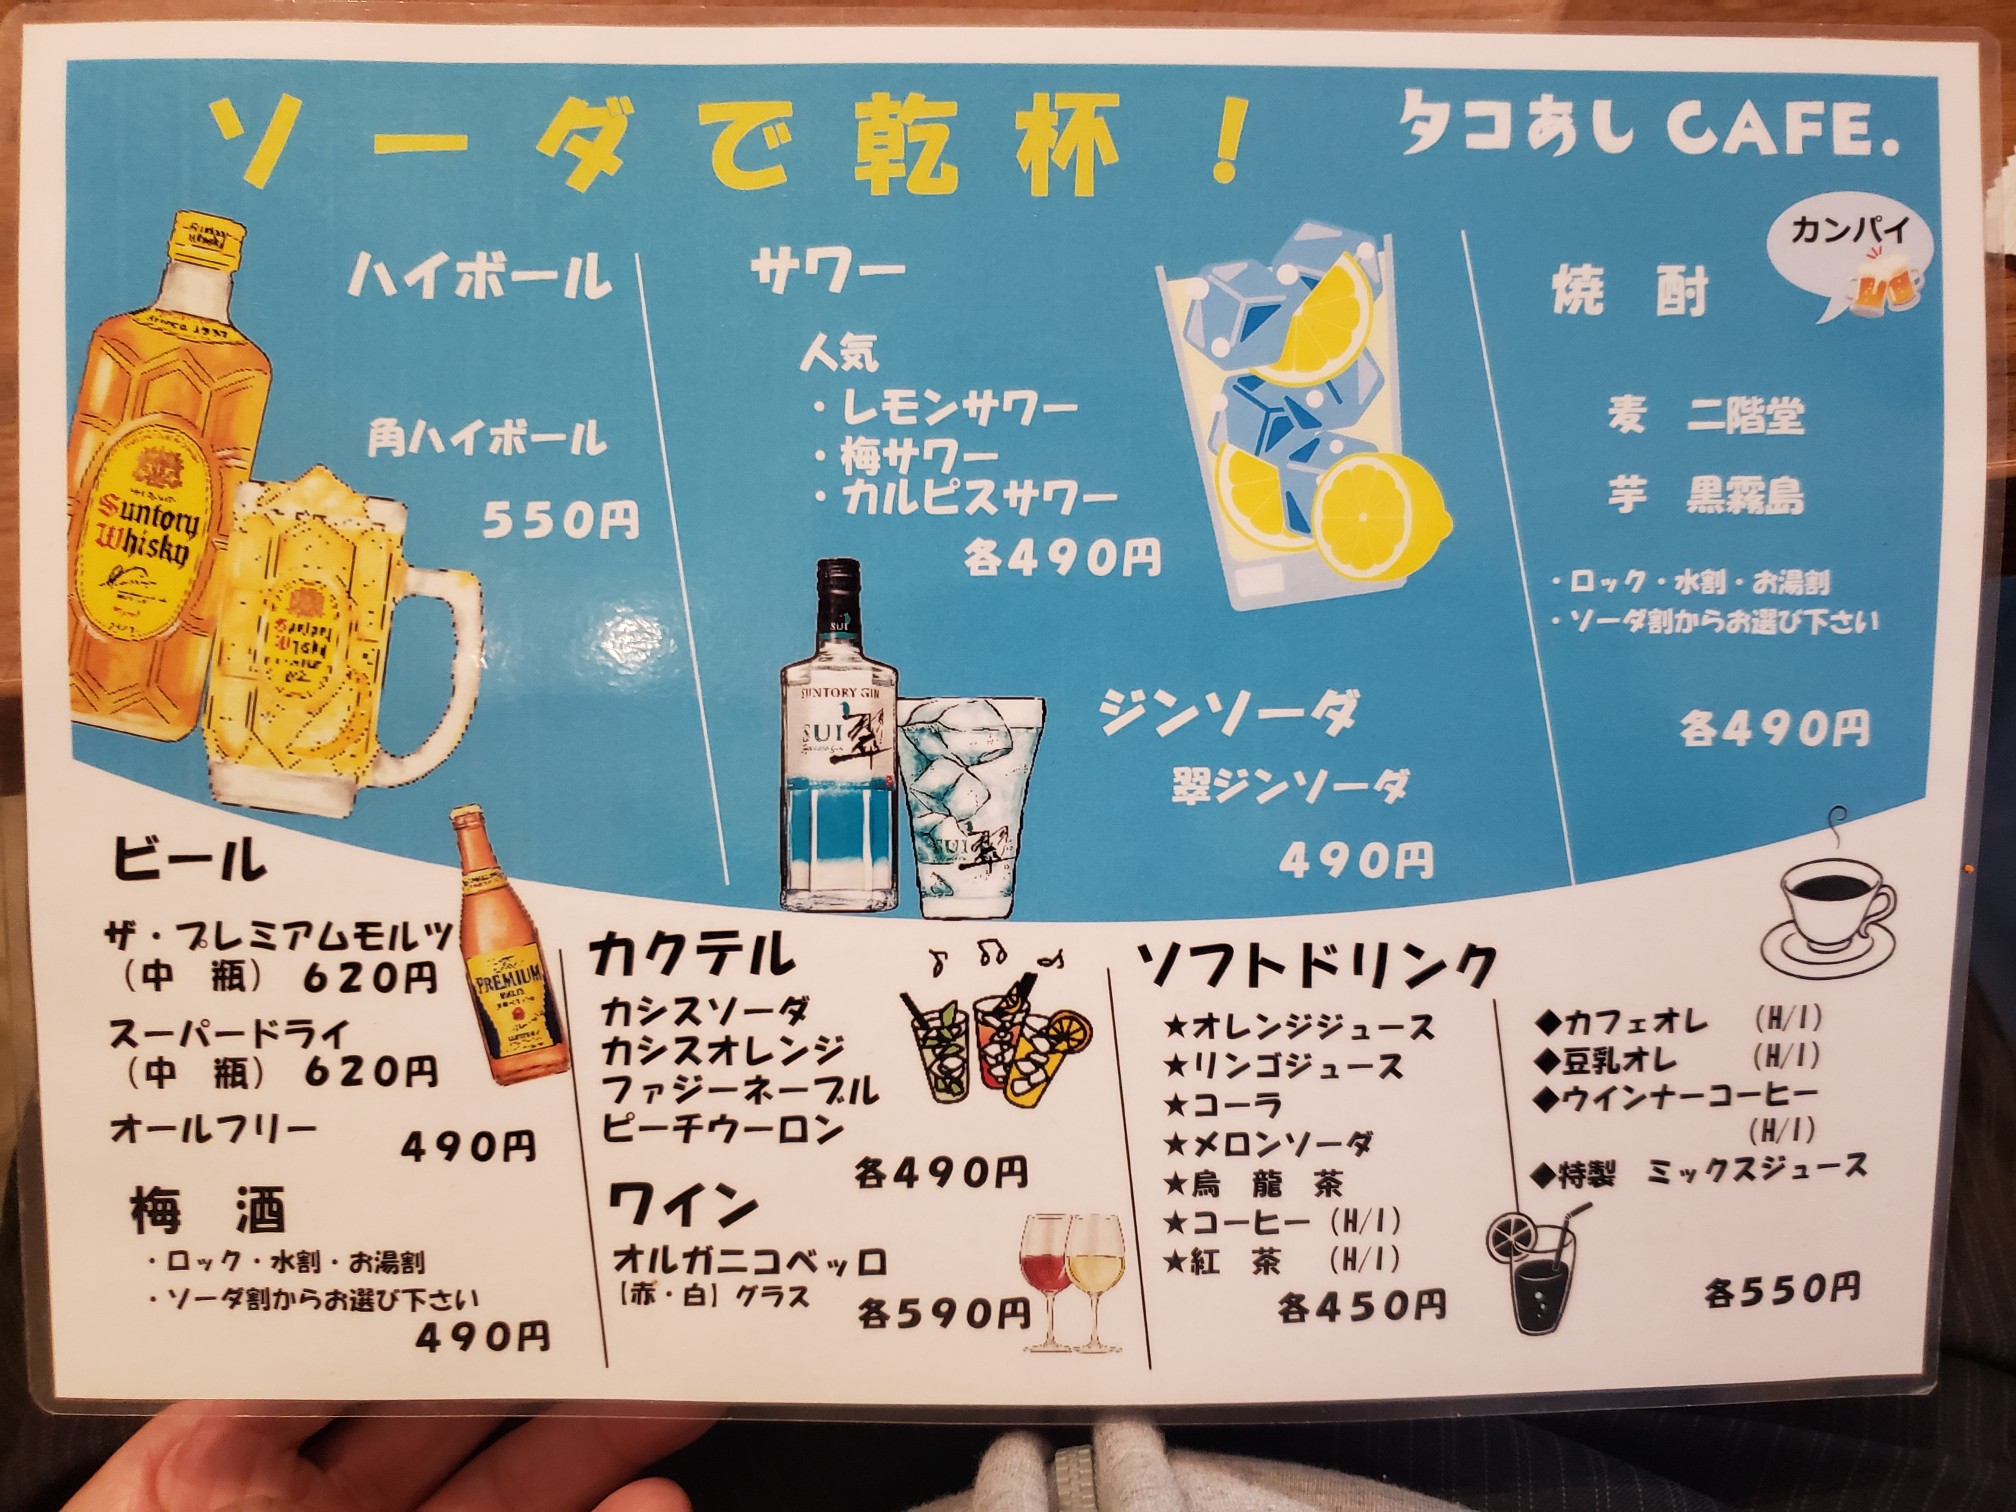 ソーダで乾杯！
タコあし CAFE.
カンパイ
ハイボール
角ハイボール
550円
Suntory
Whisky
サワー
人気
・レモンサワー
・梅サワー
・カルピスサワー
各490円
SUI
SUNTORY GIN
SUI
翠
ジンソーダ
翠ジンソーダ
490円
焼 酎
麦 二階堂
芋 黒霧島
・ロック・水割・お湯割
・ソーダ割からお選び下さい
各490円
ビール
ザ・プレミアムモルツ
（中 瓶） 620円
スーパードライ
（中 瓶） 620円
オールフリー
490円
The
PREMIUM
梅 酒
・ロック・水割・お湯割
・ソーダ割からお選び下さい
490円
カクテル
カシスソーダ
カシスオレンジ
ファジーネーブル
ピーチウーロン
各490円
ワイン
オルガニコベッロ
【赤・白】グラス
各590円
ソフトドリンク
★オレンジジュース
★リンゴジュース
★コーラ
★メロンソーダ
★烏 龍 茶
★コーヒー（H/I）
★紅 茶 （H/I）
各450円
◆カフェオレ （H/I）
◆豆乳オレ （H/I）
◆ウインナーコーヒー
（H/I）
◆特製 ミックスジュース
各550円